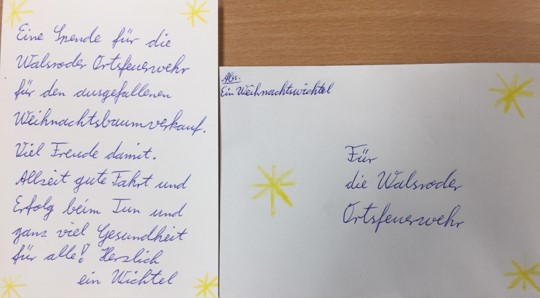 Eine Spende für die
Walsroder Ortsfeuerwehr
für den ausgefallenen
Weihnachtsbaumverkauf.
Viel Freude damit.
Allzeit gute Fahrt und
Erfolg beim Tun und
ganz viel Gesundheit
für alle! Herzlich
ein Wichtel
Abs.
Ein Weihnachtswichtel
Für
die Walsroder
Ortsfeuerwehr